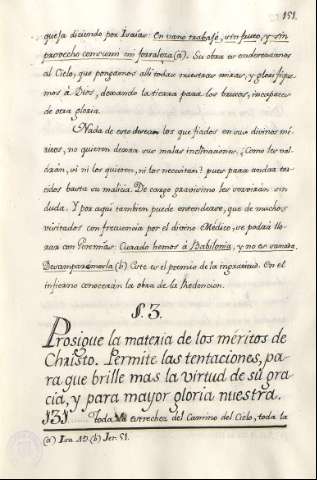 151.
quexa diciendo por Isaias: En vano trabajé, sin fruto, y sin
provecho consumí mi fortaleza (a). Su obra es enderezarnos
al Cielo, que pongamos allí todas nuestras miras, y glorifique
mos á Dios, dexando la tierra para los brutos, incapaces
de otra gloria.
Nada de esto desean los que fiados en sus divinos mé
ritos, no quieren dexar sus malas inclinaciones. ¿Como les val
drán, si ni los quieren, ni los necesitan? pues para condenar
les basta su malicia. De cargo gravisimo les servirán sin
duda. Y por aquí tambien puede entenderse, que de muchos
visitados con frecuencia por el divino Médico, se podrá llo
rar con Jeremías: Curado hemos á Babilonia, y no es sanada.
Desamparémosla (b) Este es el premio de la ingratitud. En el
infierno conocerán la obra de la Redencion.
§. 3.
Prosigue la materia de los méritos de
Christo. Permite las tentaciones, pa-
ra que brille mas la virtud de su gra
cia, y para mayor gloria nuestra.
131. Toda la estrechez del Camino del Cielo, toda la
(a) Isa. 49 (b) Jer. 51.